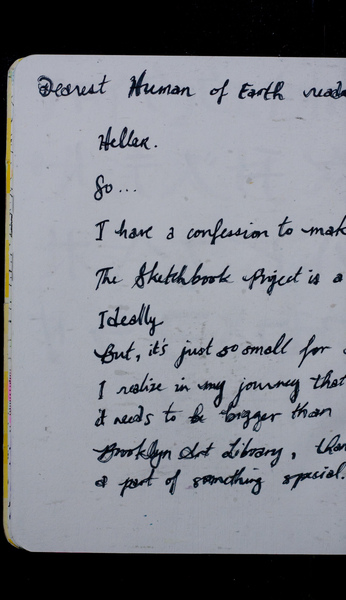 Dearest Human of Earth read
Heller.
So...
I have a confession to mak
The Sketchbook Project is a
Ideally
But, it's just so small for
I realize in my journey that
it needs to be bigger than
Brooklyn Art Library, than
a part of something special.